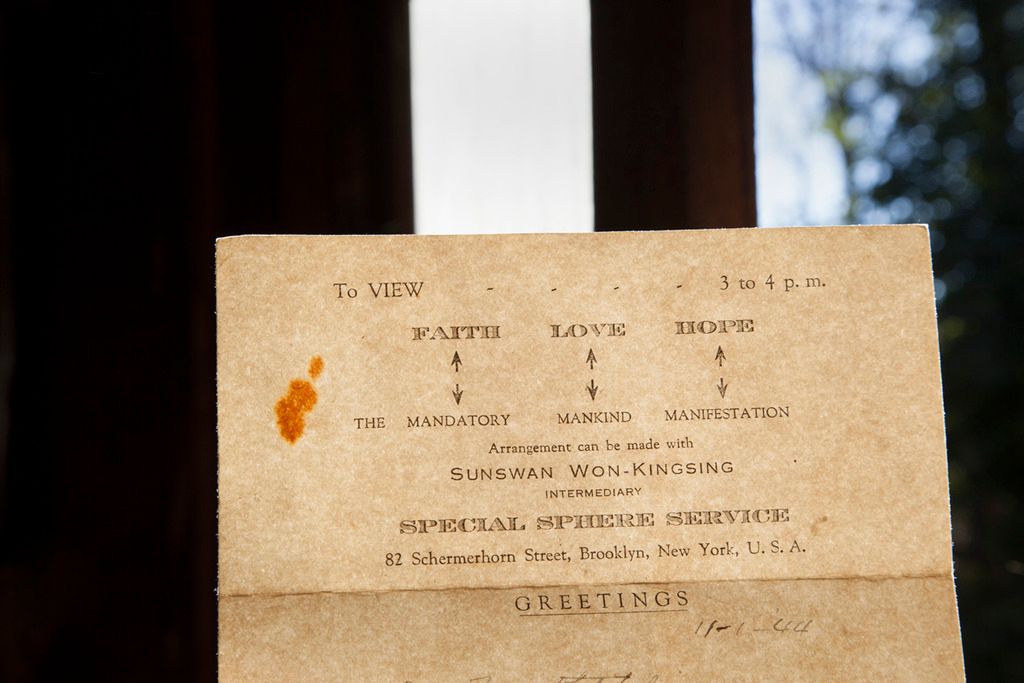 To VIEW - - - - 3 to 4 p. m.
FAITH LOVE HOPE
THE MANDATORY MANKIND MANIFESTATION
Arrangement can be made with
SUNSWAN WON-KINGSING
INTERMEDIARY
SPECIAL SPHERE SERVICE
82 Schermerhorn Street, Brooklyn, New York, U. S. A.
GREETINGS
11-1-44